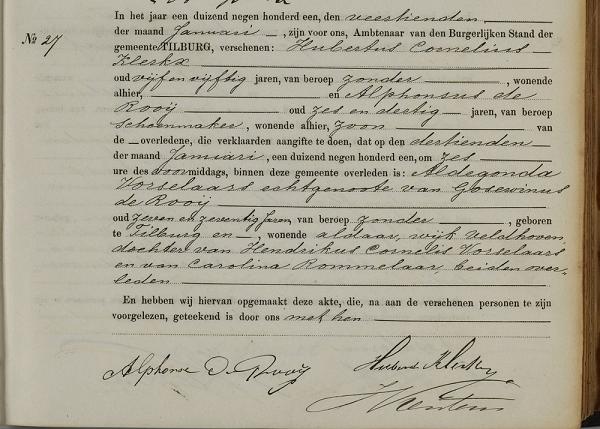 In het jaar een duizend negen honderd een, den veertienden
No 27
der maand Januari, zijn voor ons, Ambtenaar van den Burgerlijken Stand der
gemeente TILBURG, verschenen: Hubertus Cornelius
Klerkx
oud vijf en vijftig jaren, van beroep zonder, wonende
alhier, en Alphonsus de
Rooij oud zes en dertig jaren, van beroep
schoenmaker, wonende alhier, zoon van
de overledene, die verklaarden aangifte te doen, dat op den dertienden
der maand Januari, een duizend negen honderd een, om zes
ure des voormiddags, binnen deze gemeente overleden is: Aldegonda
Vorselaars echtgenoote van Gosewinus
de Rooij
oud zeven en zeventig jaren, van beroep zonder, geboren
te Tilburg en, wonende aldaar, wijk Veldhoven,
dochter van Hendrikus Cornelis Vorselaars
en van Carolina Rommelaar, beiden over-
leden
En hebben wij hiervan opgemaakt deze akte, die, na aan de verschenen personen te zijn
voorgelezen, geteekend is door ons met hen
Alphonse De Rooy